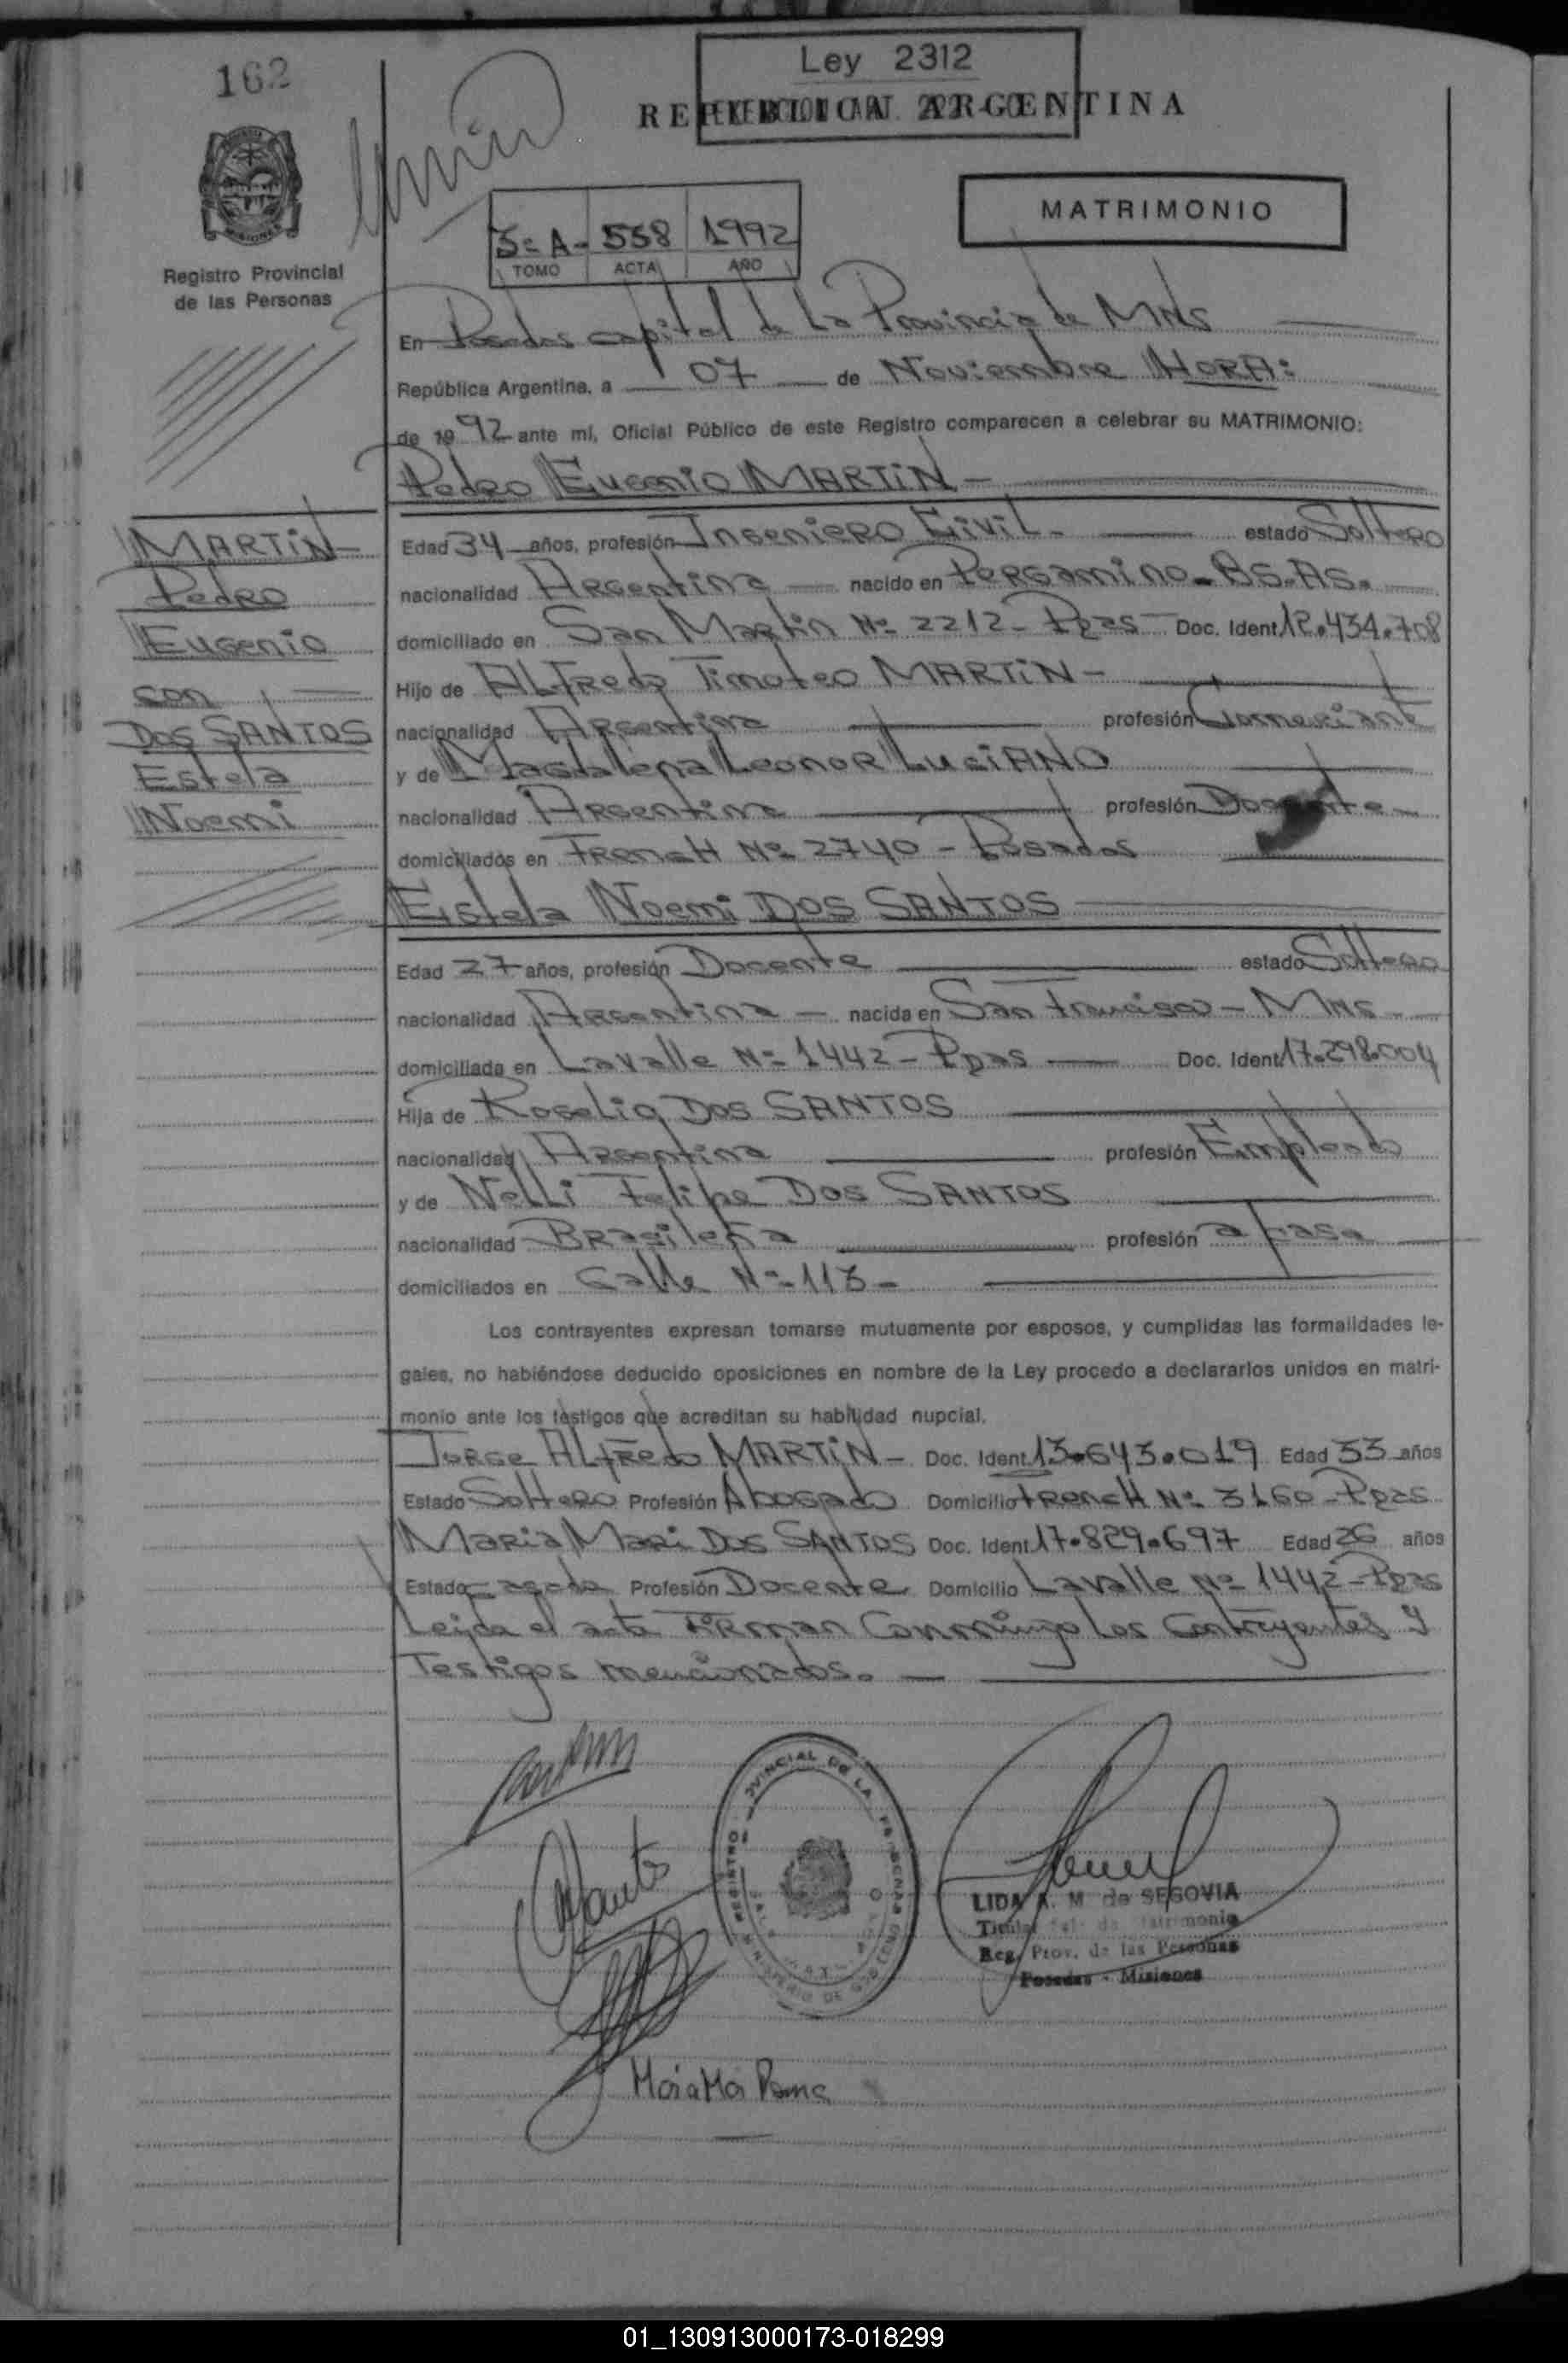 162
Ley 2312
REPUBLICA ARGENTINA
MATRIMONIO
3º A- 558 1992
TOMO ACTA AÑO
Registro Provincial
de las Personas
En Posadas capital de La Provincia de Mnes
República Argentina, a 07 de Noviembre HORA:
de 1992 ante mi, Oficial Público de este Registro comparecen a celebrar su MATRIMONIO:
Pedro Eugenio MARTiN -
MARTiN
Pedro
Eugenio
con
DOS SANTOS
Estela
Noemi
Edad 34 años, profesión Ingeniero Civil - estado Soltero
nacionalidad Argentina nacido en Pergamino - BS.AS.
domiciliado en San Martin Nº 2212 - Pdas Doc. Ident. 12.434.708
Hijo de ALFredo Timoteo MARTiN -
nacionalidad Argentina profesión Comerciante
y de Magdalena Leonor LUCiANO
nacionalidad Argentina profesión Docente
domiciliados en FrencH Nº 2740 - Posadas
Estela Noemi DOS SANTOS
Edad 27 años, profesión Docente estado Soltera
nacionalidad Argentina - nacida en San Francisco - Mnes
domiciliada en Lavalle Nº 1442 - Pdas Doc. Ident. 17.298.004
Hija de Roselio DOS SANTOS
nacionalidad Argentina profesión Empleado
y de Nelli Felipe DOS SANTOS
nacionalidad Brasileña profesión a casa
domiciliados en Calle Nº 113 -
Los contrayentes expresan tomarse mutuamente por esposos, y cumplidas las formalidades le-
gales, no habiéndose deducido oposiciones en nombre de la Ley procedo a declararlos unidos en matri-
monio ante los testigos que acreditan su habilidad nupcial.
Jorge ALFredo MARTiN - Doc. Ident. 13.643.019 Edad 33 años
Estado Soltero Profesión Abogado Domicilio FrencH Nº 3160 - Pdas
Maria Mari DOS SANTOS Doc. Ident. 17.829.697 Edad 26 años
Estado Casada Profesión Docente Domicilio Lavalle Nº 1442 - Pdas
Leida el acta Firman Conmingo Los Contrayentes y
Testigos mencionados.
LIDA A. M de SEGOVIA
Titular de Matrimonio
Reg. Prov. de las Personas
Posadas - Misiones
01_130913000173-018299